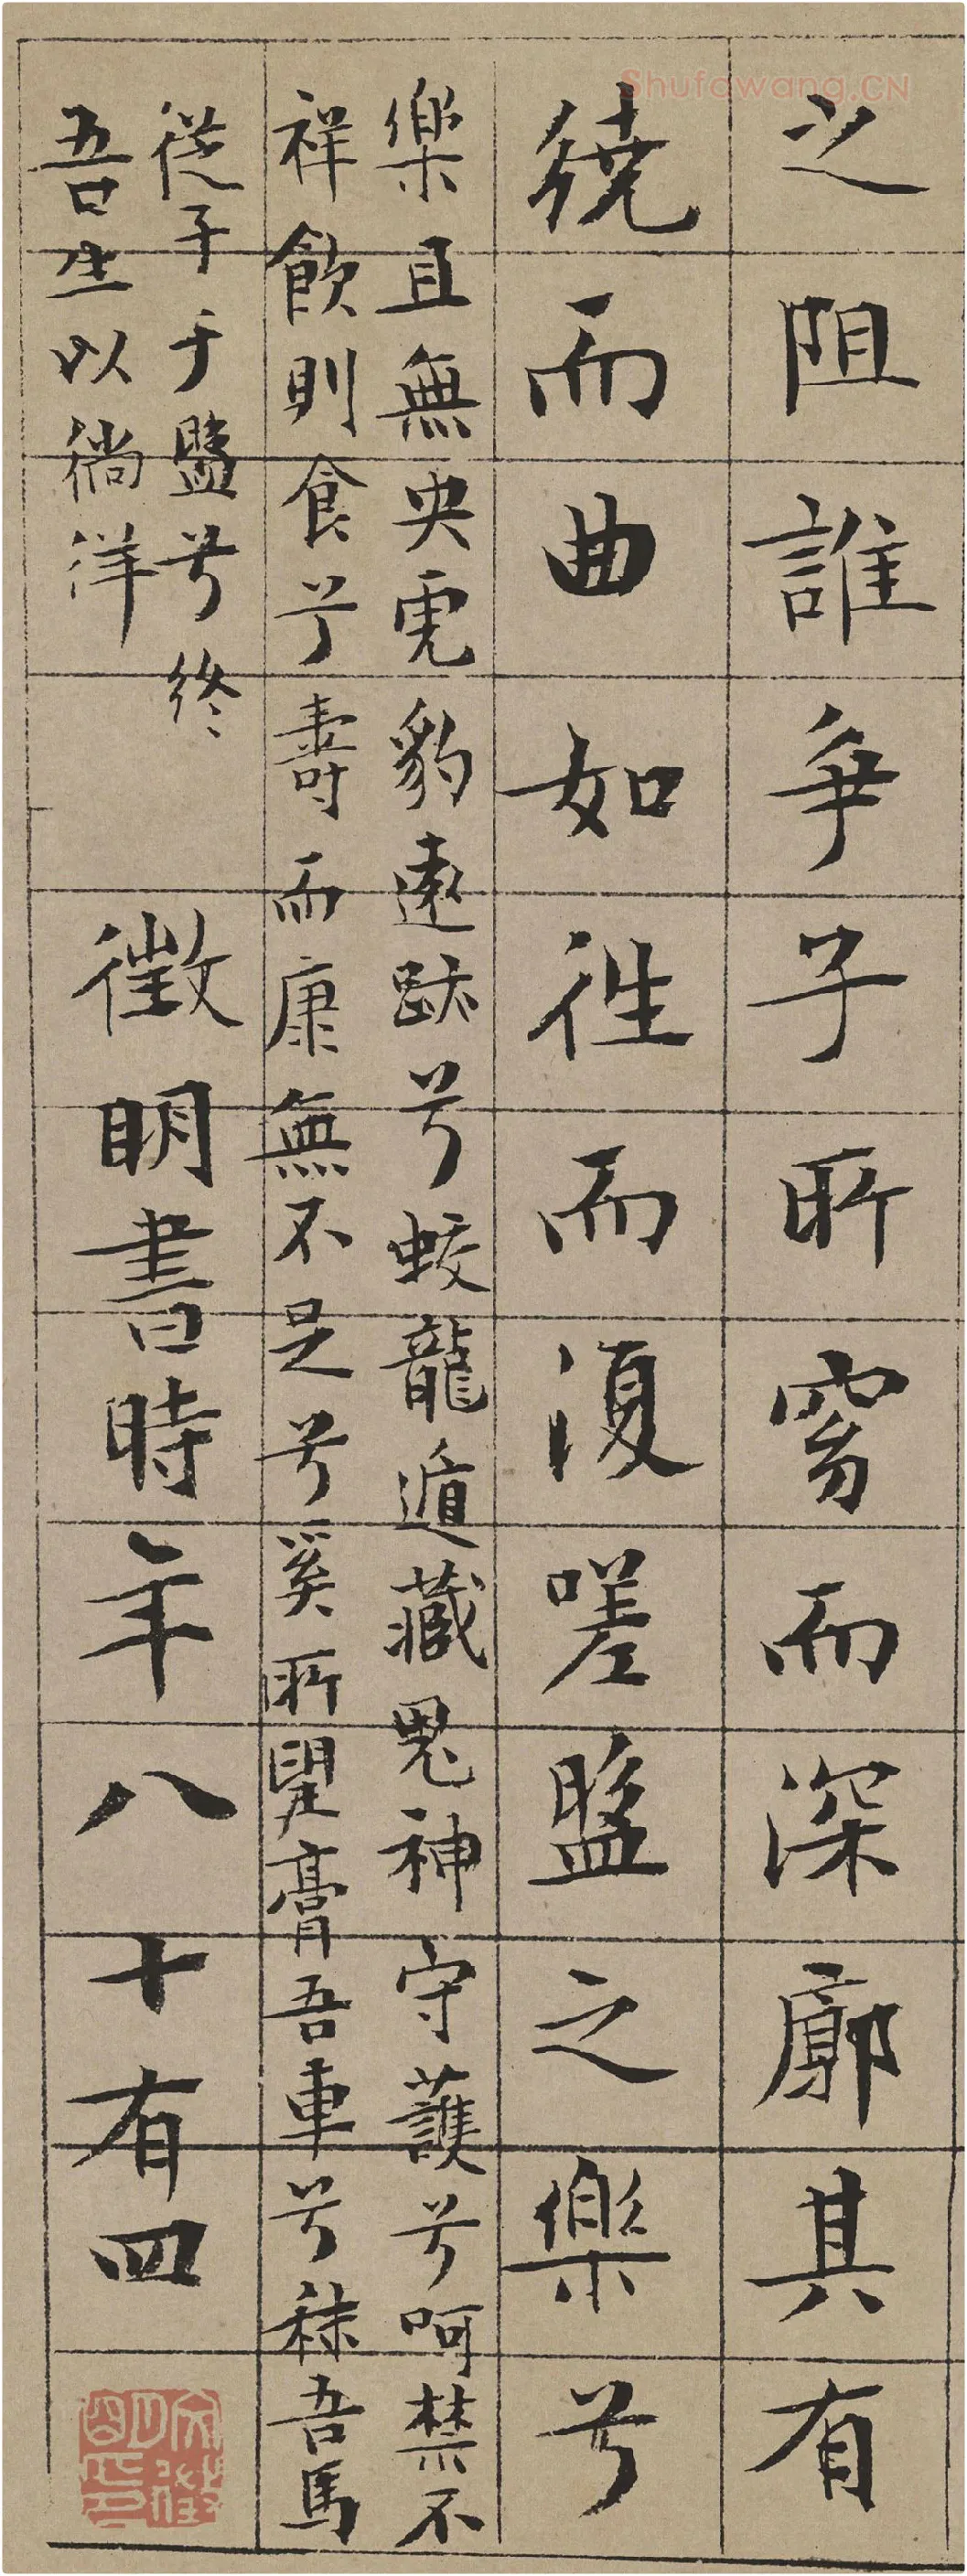 之阻誰爭子所窈而深廓其有
繞而曲如往而復嗟盤之樂兮
樂且無央虎豹遠跡兮蛟龍遁藏鬼神守護兮呵禁不
祥飲則食兮壽而康無不足兮奚所望膏吾車兮秣吾馬
從子于盤兮終
吾生以徜徉
徵明書時年八十有四
文徵明印
Shufawang.CN